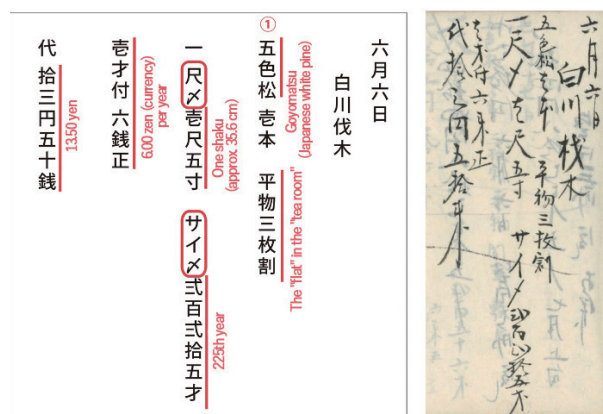 六月六日
白川伐木
①
五色松 壱本 平物三枚割
Goyomatsu
(Japanese white pine)
The "flat" in the "tea room"
一 尺〆壱尺五寸 サイ〆弐百弐拾五才
One shaku
(approx. 35.6 cm)
225th year
壱才付 六銭正
6.00 zen (currency)
per year
代 拾三円五十銭
13.50 yen
六月六日
白川伐木
五色松壱本 平物三枚割
一尺〆壱尺五寸 サイ〆弐百弐拾五才
壱才付六銭正
代拾三円五拾銭